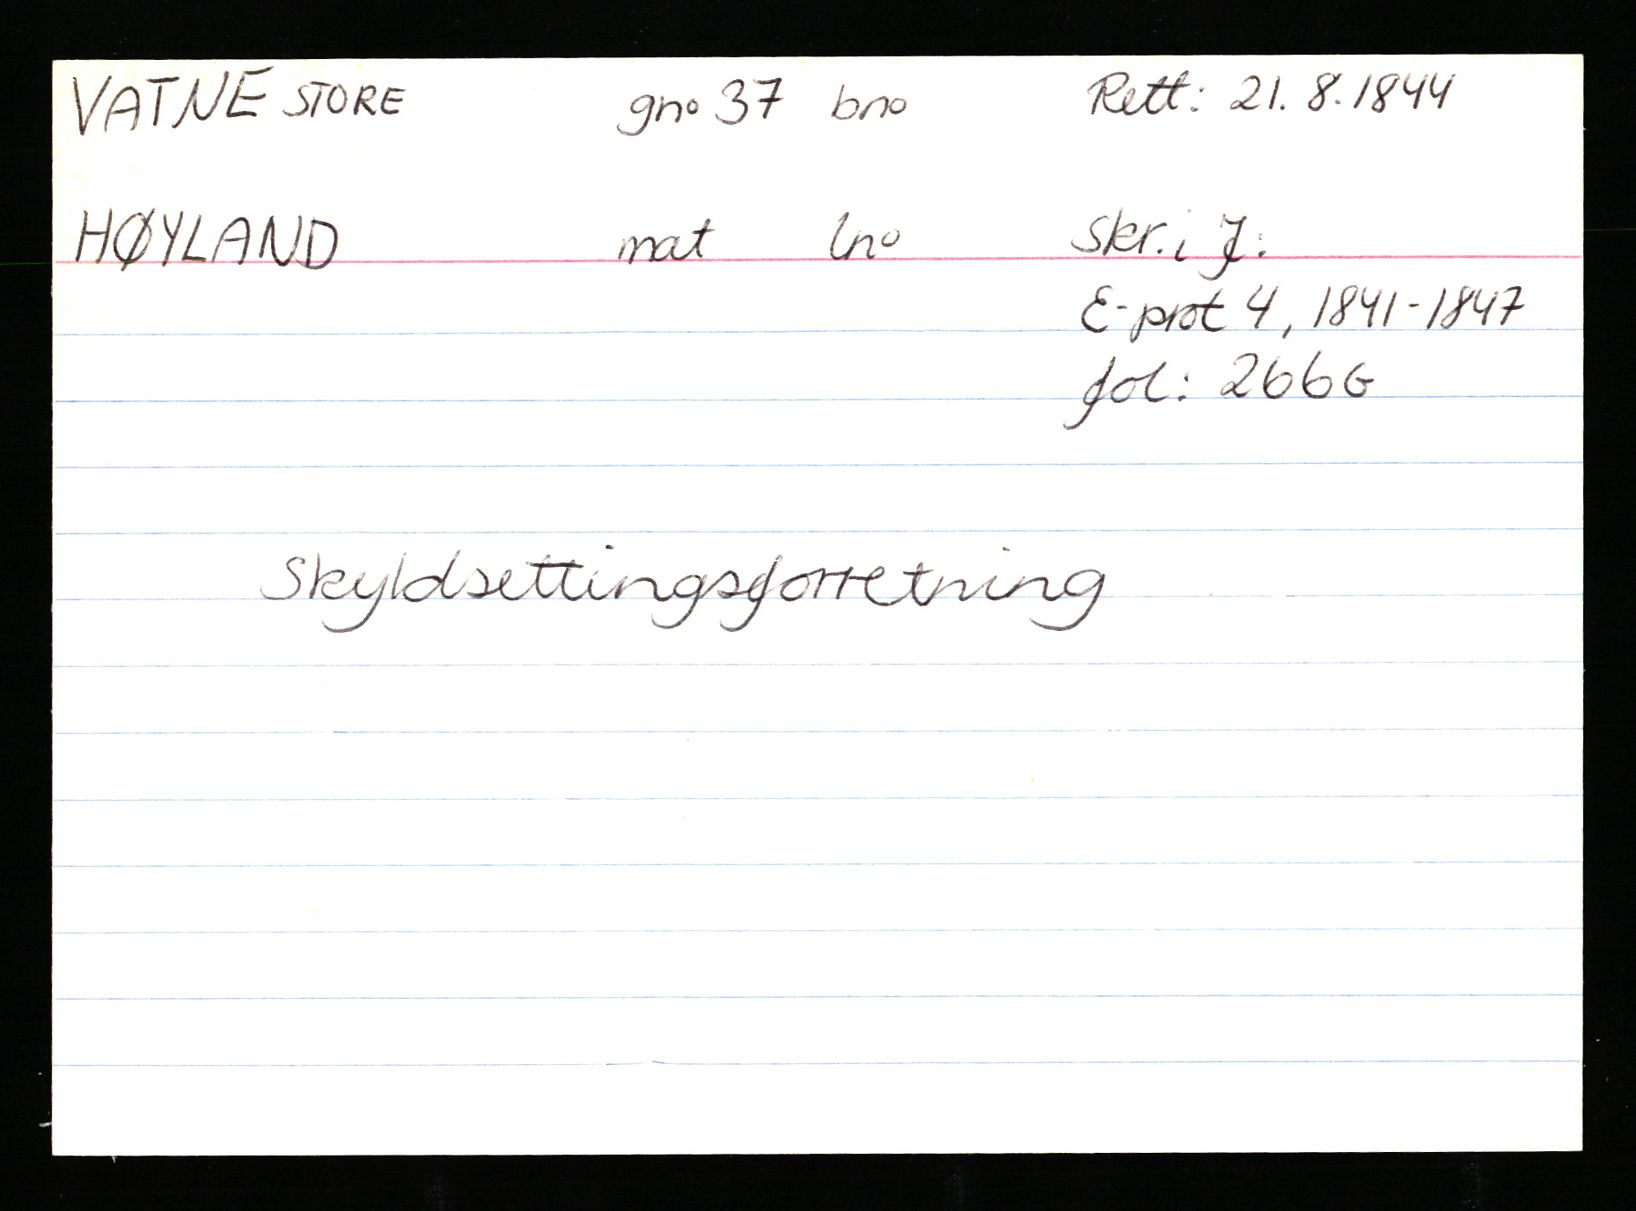 VATNE STORE gno 37 bno Rett: 21.8.1844
HØYLAND mat lno Skr. i J:
E-prot 4, 1841-1847
fol: 266G
Skyldsettingsforretning